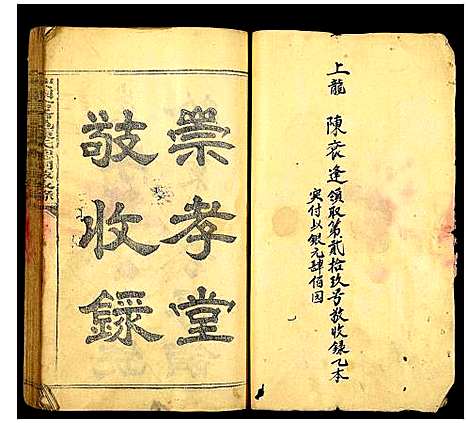 上龍 陳袞逢領取第貳拾玖号敬收錄乙本
实付以銀元肆佰囙
崇孝堂
敬收錄